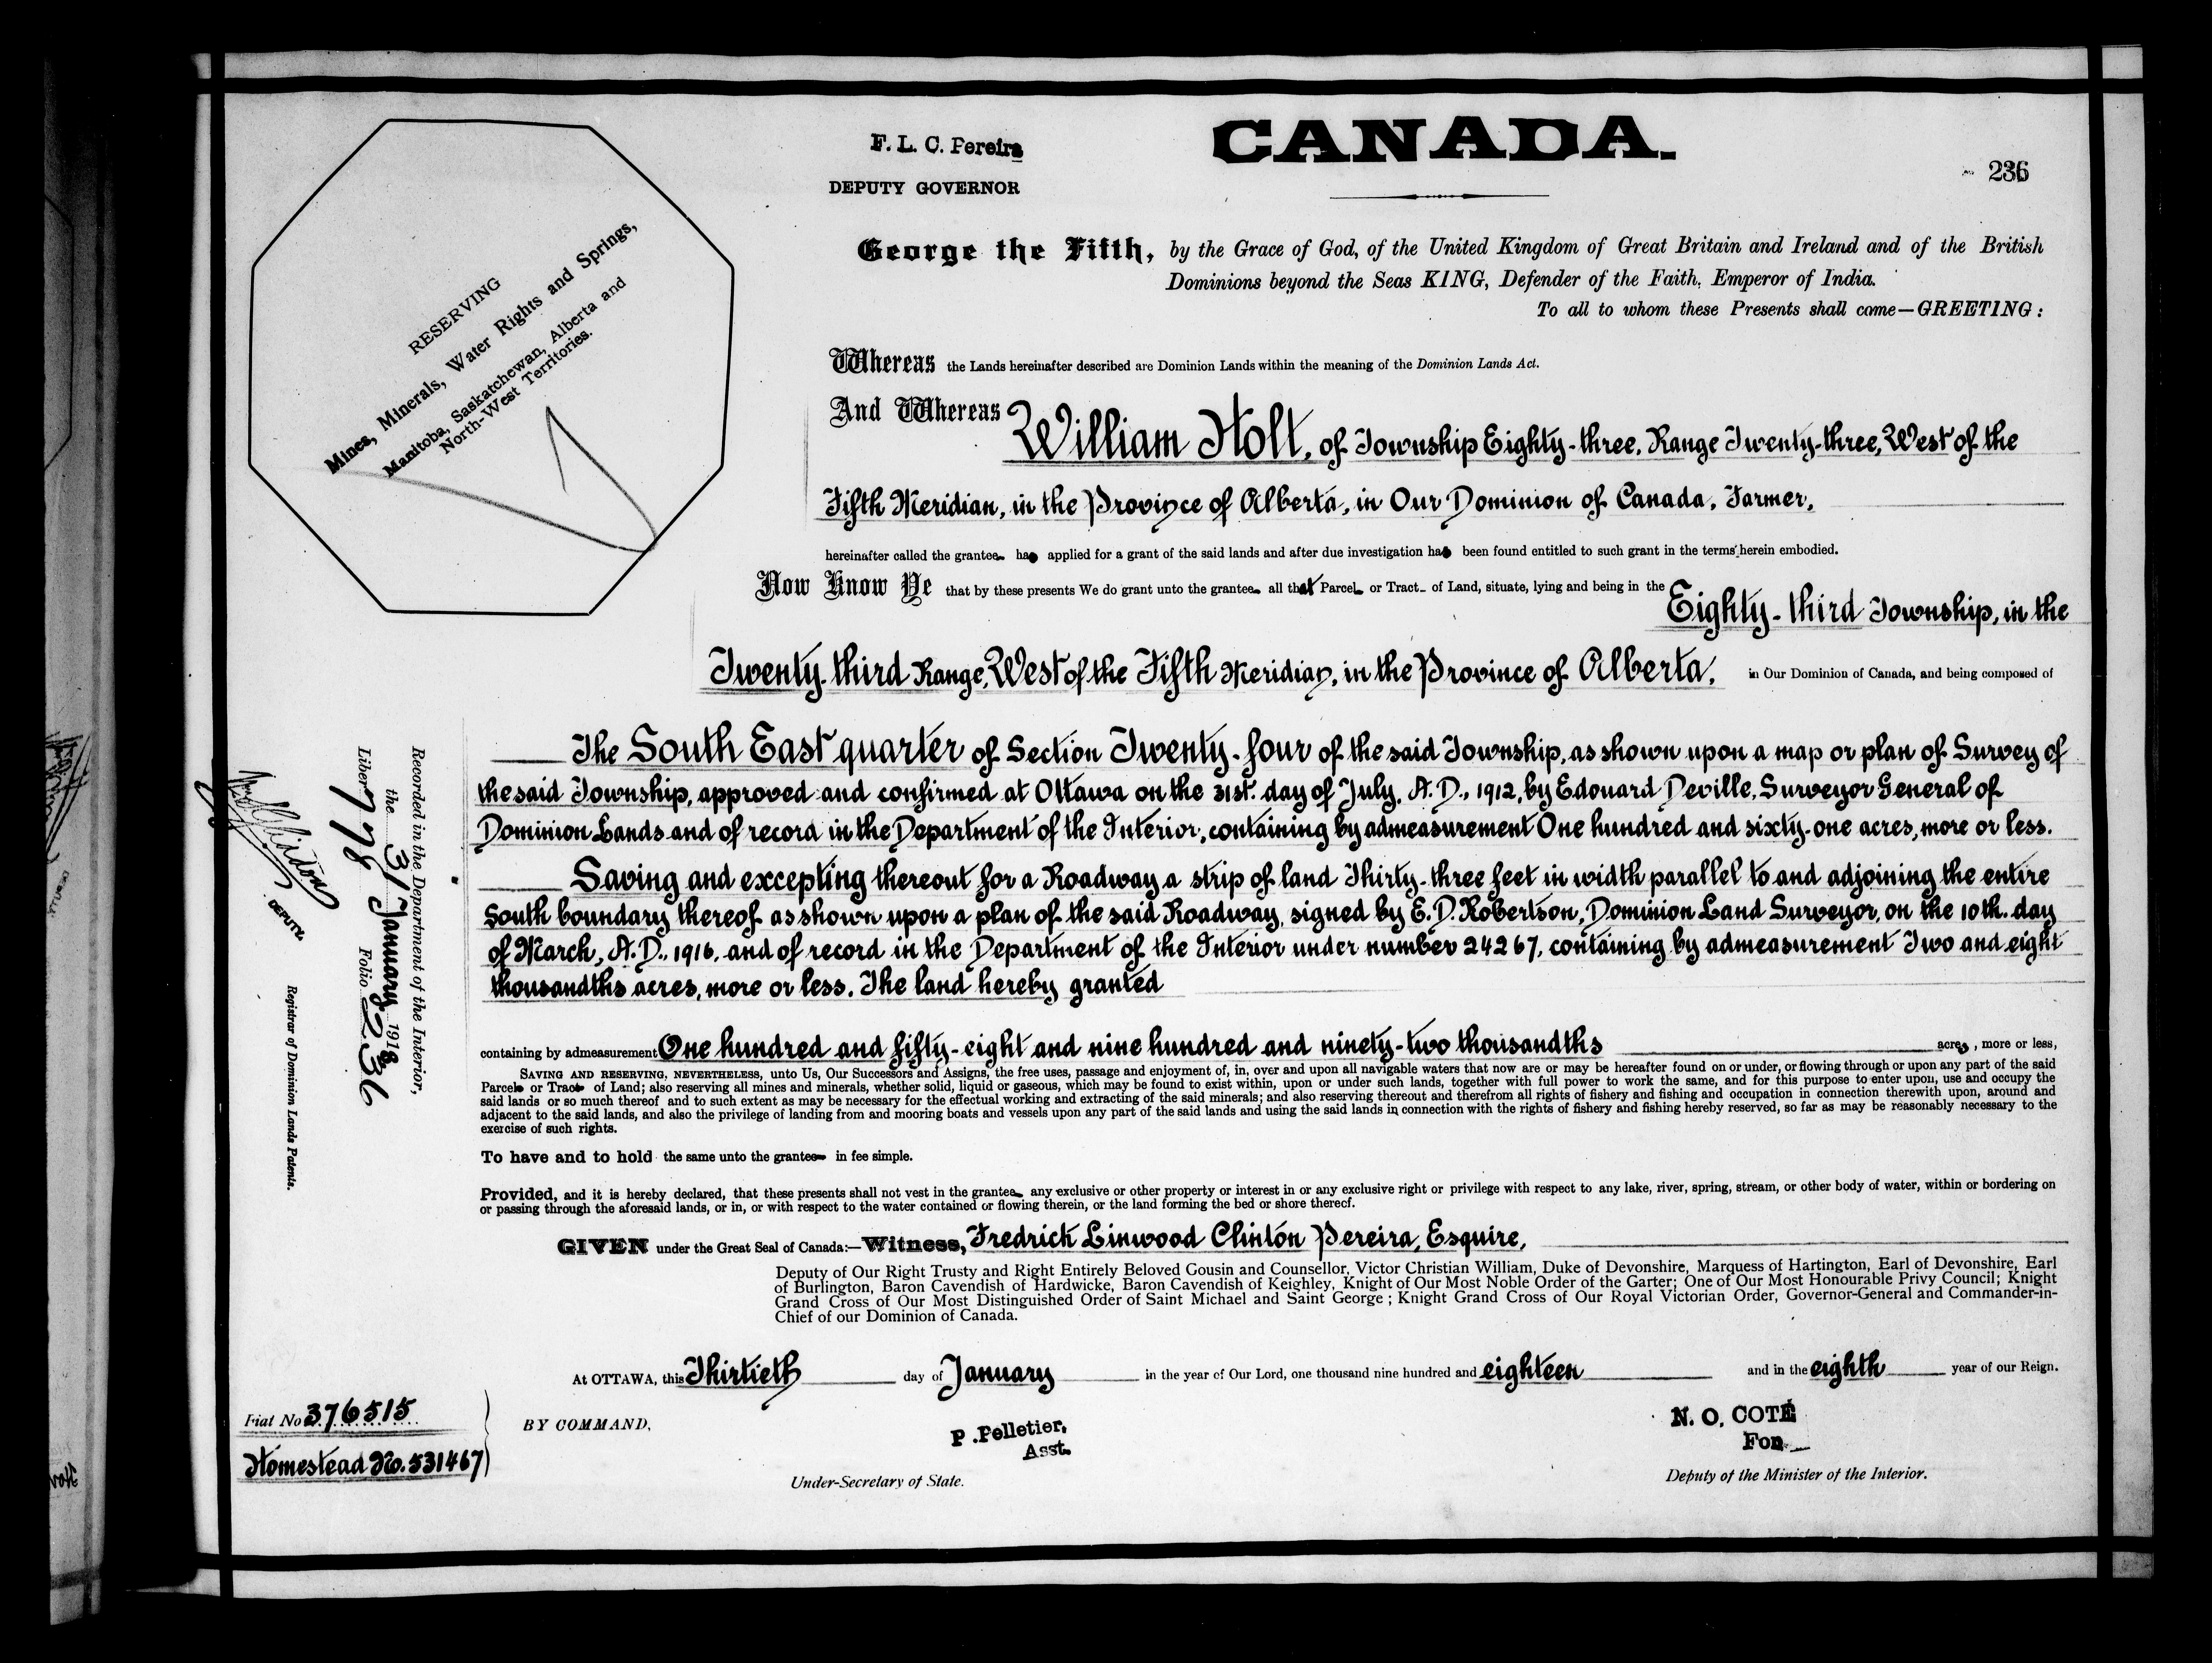 F. L. C. Pereira
DEPUTY GOVERNOR
CANADA.
236
RESERVING
Mines, Minerals, Water Rights and Springs,
Manitoba, Saskatchewan, Alberta and
North-West Territories.
George the Fifth, by the Grace of God, of the United Kingdom of Great Britain and Ireland and of the British
Dominions beyond the Seas KING, Defender of the Faith, Emperor of India.
To all to whom these Presents shall come—GREETING:
Whereas the Lands hereinafter described are Dominion Lands within the meaning of the Dominion Lands Act.
And Whereas William Holt, of Township Eighty-three, Range Twenty-three, West of the
Fifth Meridian, in the Province of Alberta, in Our Dominion of Canada, Farmer,
hereinafter called the grantee has applied for a grant of the said lands and after due investigation has been found entitled to such grant in the terms herein embodied.
Now Know Ye that by these presents We do grant unto the grantee all that Parcel or Tract of Land, situate, lying and being in the Eighty-third Township, in the
Twenty-third Range, West of the Fifth Meridian, in the Province of Alberta, in Our Dominion of Canada, and being composed of
The South East quarter of Section Twenty-four of the said Township, as shown upon a map or plan of Survey of
the said Township, approved and confirmed at Ottawa on the 31st. day of July, A.D., 1912, by Edouard Deville, Surveyor General of
Dominion Lands and of record in the Department of the Interior, containing by admeasurement One hundred and sixty-one acres, more or less.
Saving and excepting thereout for a Roadway a strip of land Thirty-three feet in width parallel to and adjoining the entire
South boundary thereof as shown upon a plan of the said Roadway, signed by E. D. Robertson, Dominion Land Surveyor, on the 10th. day
of March, A.D., 1916, and of record in the Department of the Interior under number 24267, containing by admeasurement Two and eight
thousandths acres, more or less. The land hereby granted
containing by admeasurement One hundred and fifty-eight and nine hundred and ninety-two thousandths acres, more or less,
SAVING AND RESERVING, NEVERTHELESS, unto Us, Our Successors and Assigns, the free uses, passage and enjoyment of, in, over and upon all navigable waters that now are or may be hereafter found on or under, or flowing through or upon any part of the said
Parcel or Tract of Land; also reserving all mines and minerals, whether solid, liquid or gaseous, which may be found to exist within, upon or under such lands, together with full power to work the same, and for this purpose to enter upon, use and occupy the
said lands or so much thereof and to such extent as may be necessary for the effectual working and extracting of the said minerals; and also reserving thereout and therefrom all rights of fishery and fishing and occupation in connection therewith upon, around and
adjacent to the said lands, and also the privilege of landing from and mooring boats and vessels upon any part of the said lands and using the said lands in connection with the rights of fishery and fishing hereby reserved, so far as may be reasonably necessary to the
exercise of such rights.
To have and to hold the same unto the grantee in fee simple.
Provided, and it is hereby declared, that these presents shall not vest in the grantee any exclusive or other property or interest in or any exclusive right or privilege with respect to any lake, river, spring, stream, or other body of water, within or bordering on
or passing through the aforesaid lands, or in, or with respect to the water contained or flowing therein, or the land forming the bed or shore thereof.
GIVEN under the Great Seal of Canada:—Witness, Fredrick Linwood Clinton Pereira, Esquire,
Deputy of Our Right Trusty and Right Entirely Beloved Gousin and Counsellor, Victor Christian William, Duke of Devonshire, Marquess of Hartington, Earl of Devonshire, Earl
of Burlington, Baron Cavendish of Hardwicke, Baron Cavendish of Keighley, Knight of Our Most Noble Order of the Garter; One of Our Most Honourable Privy Council; Knight
Grand Cross of Our Most Distinguished Order of Saint Michael and Saint George ; Knight Grand Cross of Our Royal Victorian Order, Governor-General and Commander-in-
Chief of our Dominion of Canada.
At OTTAWA, this Thirtieth day of January in the year of Our Lord, one thousand nine hundred and eighteen and in the eighth year of our Reign.
BY COMMAND,
P. Pelletier,
Asst.
Under-Secretary of State.
N. O. COTÉ
For
Deputy of the Minister of the Interior.
Fiat No 376515
Homestead No. 531467
Recorded in the Department of the Interior,
the 31 January 1918
Liber 778 Folio 236
DEPUTY.
Registrar of Dominion Lands Patents.